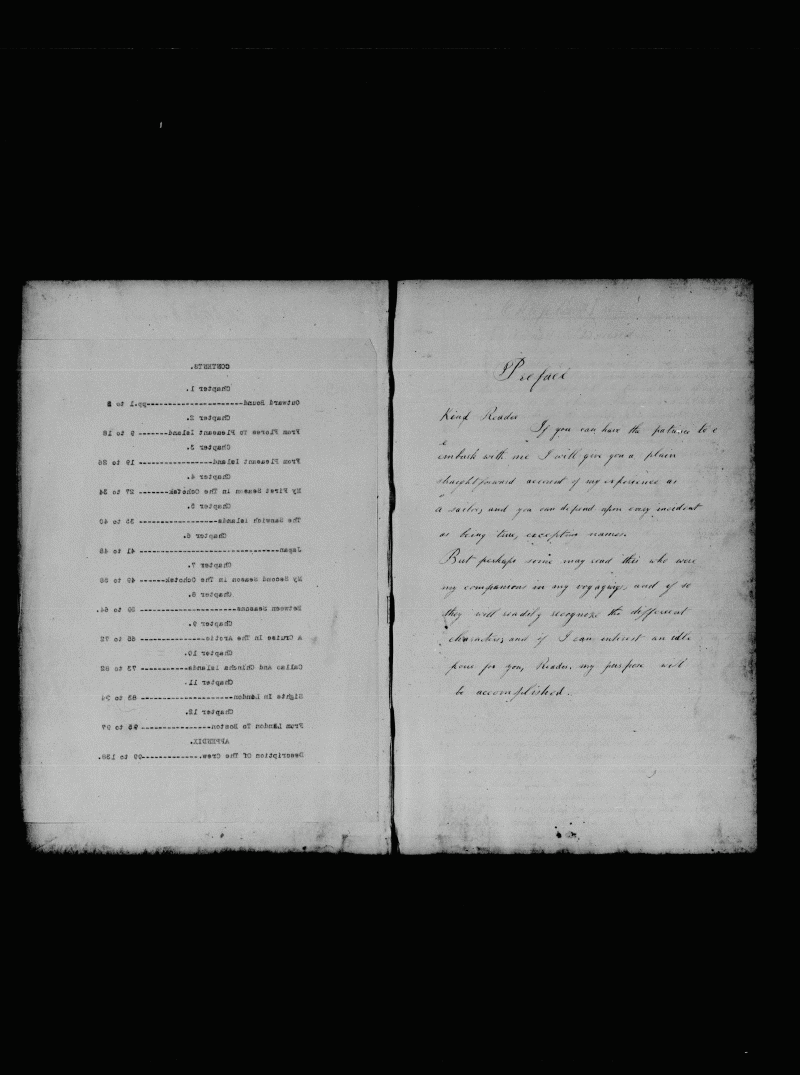 CONTENTS.
Chapter 1.
Outward Bound----------------------pp.1 to 8
Chapter 2.
From Flores To Pleasant Island------- 9 to 18
Chapter 3.
From Pleasant Island----------------- 19 to 26
Chapter 4.
My First Season in The Ochotsk------- 27 to 34
Chapter 5.
The Sanwich Islands------------------ 35 to 40
Chapter 6.
Japan-------------------------------- 41 to 48
Chapter 7.
My Second Season In The Ochotsk------ 49 to
Chapter 8.
Between Seasons---------------------- to 64.
Chapter 9.
A Cruise In The Arctic--------------- 65 to 72
Chapter 10.
Callao And Chincha Islands----------- 73 to 82
Chapter 11.
Sights In London--------------------- 83 to 94
Chapter 12.
From London To Boston---------------- 95 to 97
APPENDIX.
Description Of The Crew.-------------99 to 138.
Preface
Kind Reader
If you can have the patience to
embark with me I will give you a plain
straightforward account of my experience as
a sailor, and you can depend upon every incident
as being true, excepting names.
But perhaps some may read this who were
my companions in my voyaging, and if so
they will readily recognize the different
characters, and if I can interest an idle
hour for you, Reader, my purpose will
be accomplished.